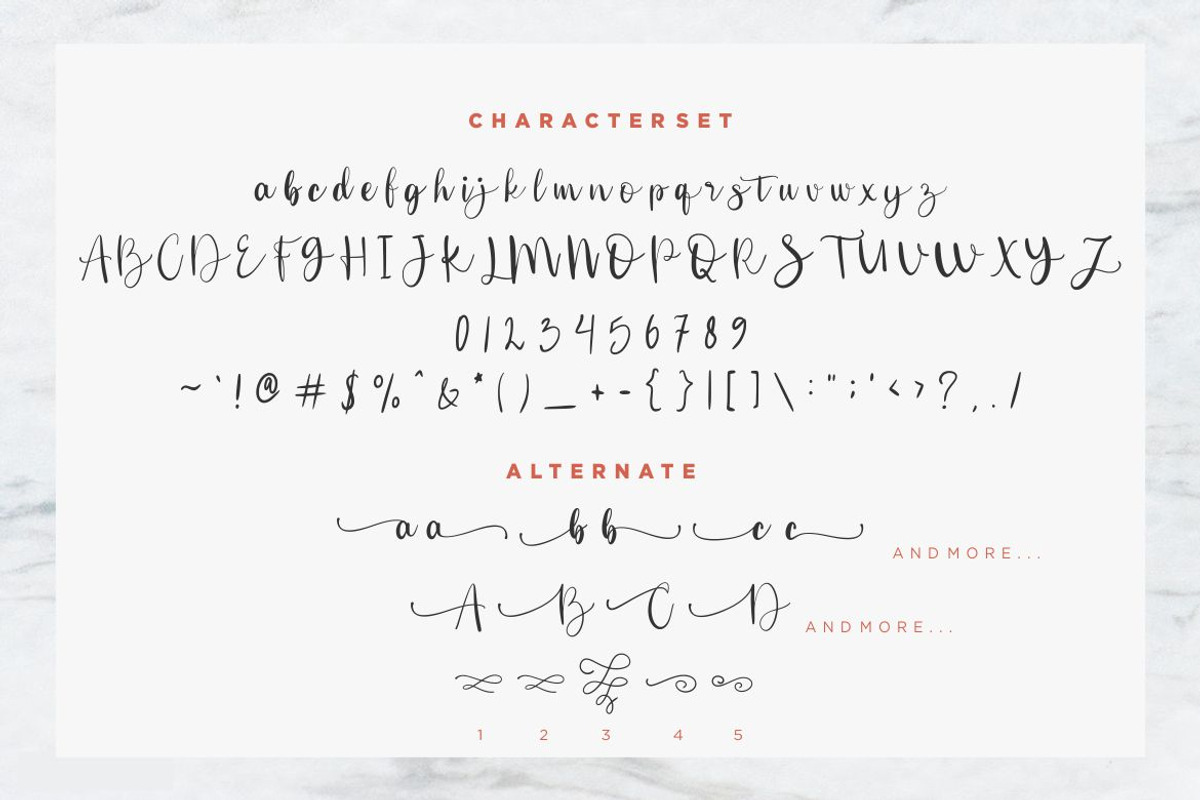 CHARACTERSET
abcdefghijklmnopqrstuvwxyz
ABCDEFGHIJKLMNOPQRSTUVWXYZ
0123456789
~`!@#$%^&*()_+-{}|[]\:";'<>?,./
ALTERNATE
aa bb cc AND MORE...
A B C D AND MORE...
1 2 3 4 5